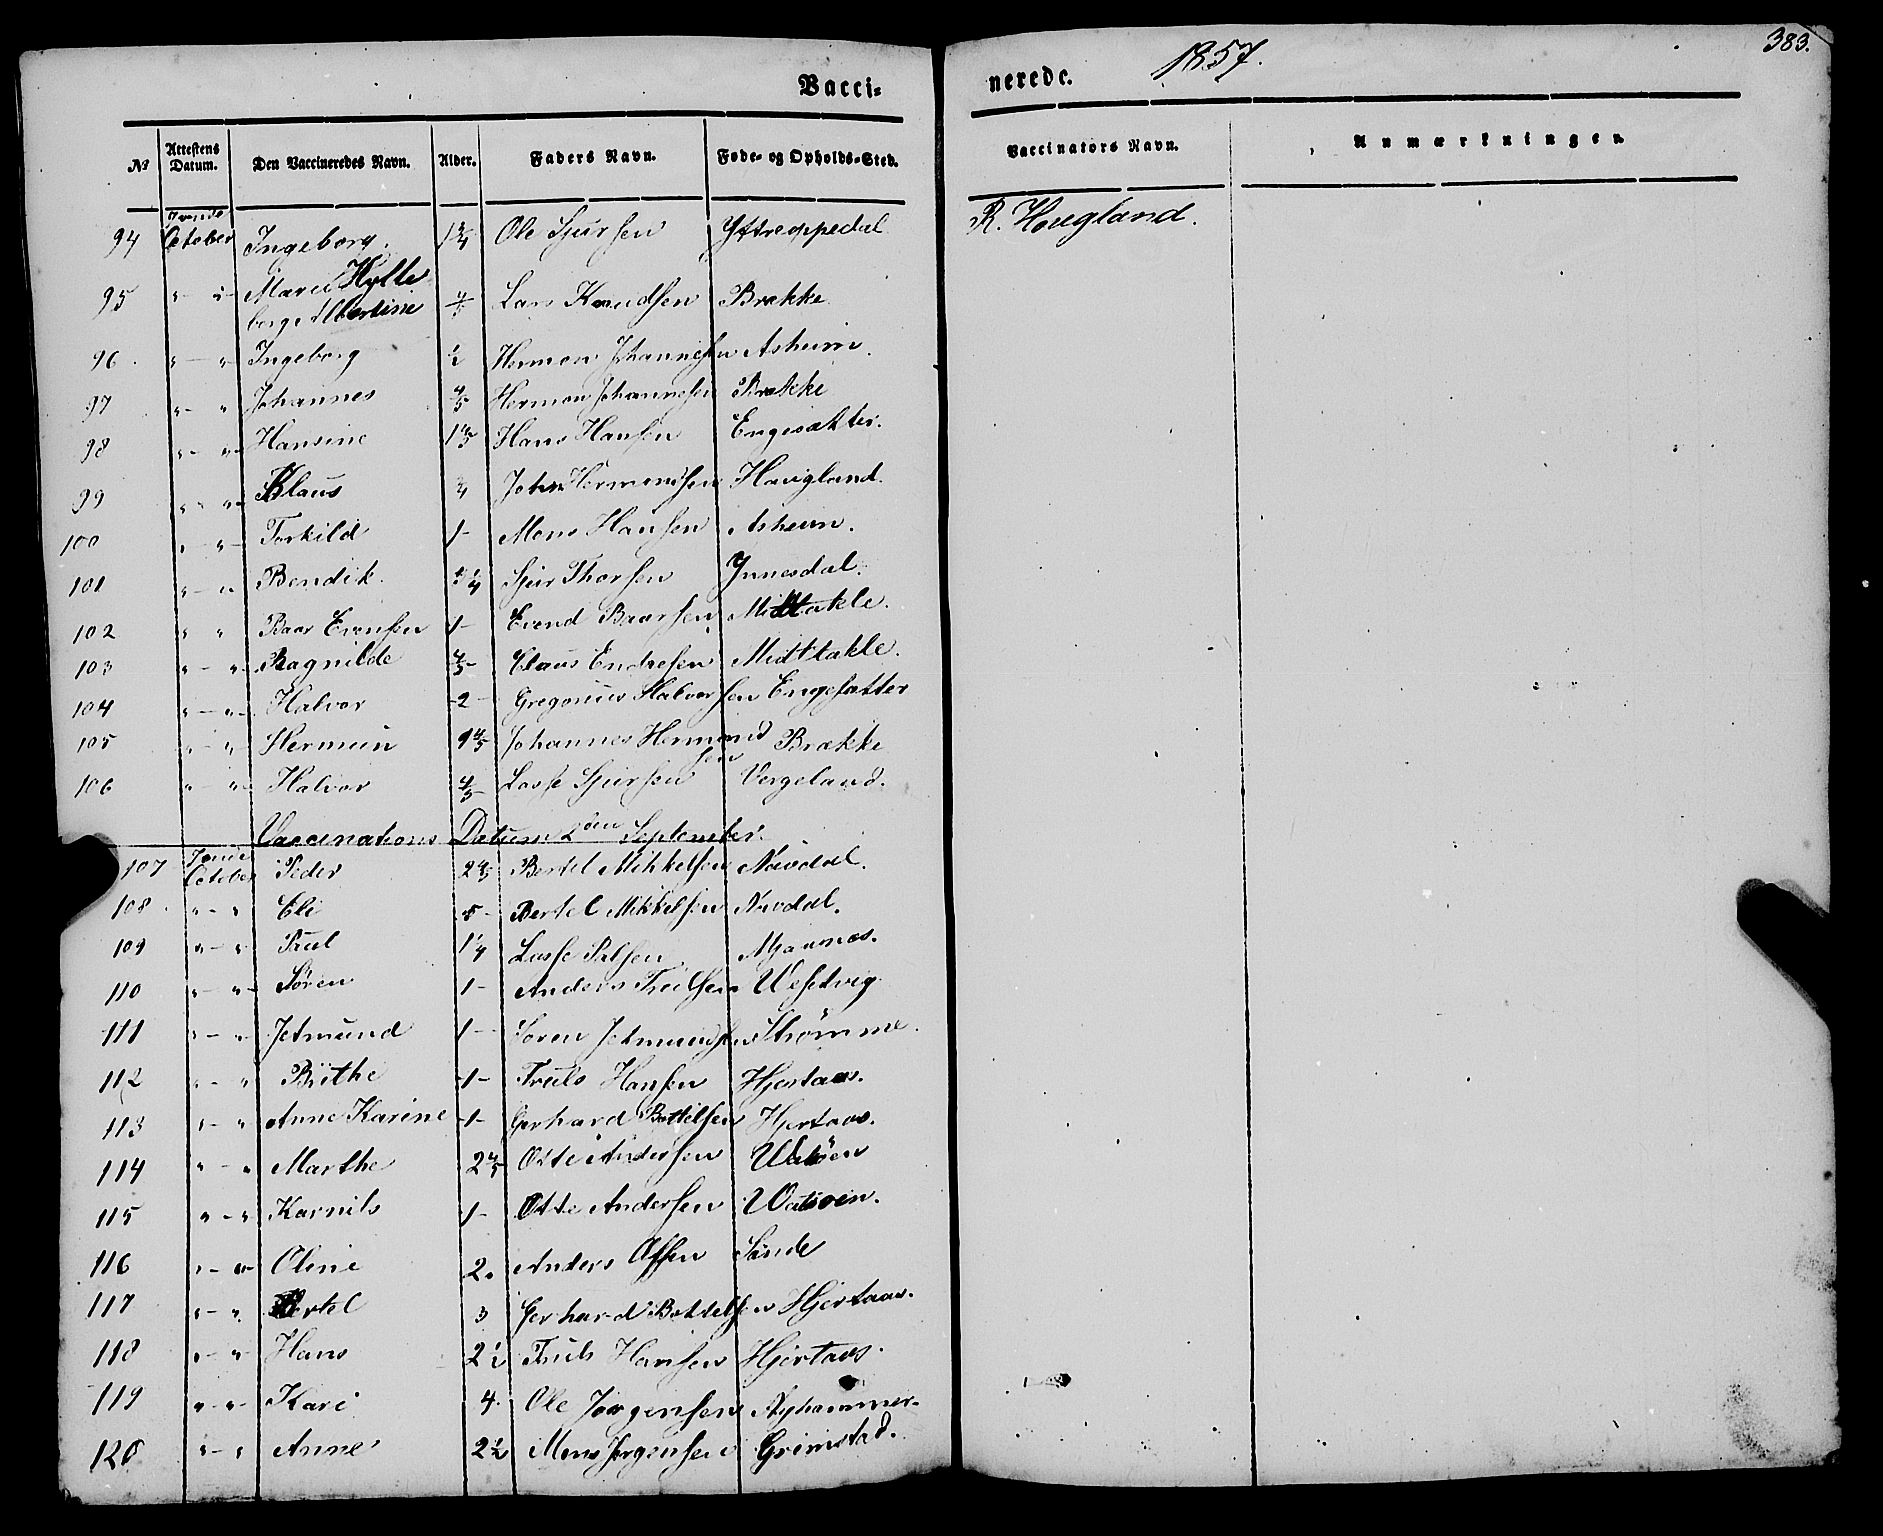 383.
1857.
Vacci- nerede.
No Attestens Datum. Den Vaccineredes Navn. Alder. Faders Navn. Føde- og Opholds-Sted. Vaccinators Navn. Anmærkninger.
94 October Ingeborg. 1 3/4 Ole Sjursen Yttreoppedal R. Hougland.
95 " " Maren Hylle
borg Albertine 4/5 Lars Knudsen Brække
96 " " Ingeborg 1/2 Hermon Johannesen Asheim
97 " " Johannes 4/5 Hermon Johannesen Brække
98 " " Hansine 1 4/5 Hans Hansen Engesætter.
99 " " Klaus 3/4 John Hermondsen Haugland.
100 " " Torkild 1 Mons Hansen Asheim.
101 " " Bendik 1/4 Sjur Thorsen Ynnesdal.
102 " " Baar Evensen 1 Evend Baarsen Midttakle.
103 " " Ragnilde 4/5 Claus Endresen Midttakle.
104 " " Halvor 2 Gregorius Halvorsen Engesætter
105 " " Hermun 9 4/5 Johannes Hermond
sen Brække
106 " " Halvor 4/5 Lasse Sjursen Vergeland.
Vaccinations Datum 2den September.
107 October Peder 2 4/5 Bertel Mikkelsen Nævdal.
108 " " Eli 5 Bertel Mikkelsen Nævdal.
109 " " Paul 1 1/4 Lasse Palsen Mjaanæs.
110 " " Søren 1 Anders Trulsen Westvig
111 " " Jetmund 1 Søren Jetmundsen Strømme.
112 " " Brithe 1 Truls Hansen Hjertaas.
113 " " Anne Karine 1 Gerhard Bottelsen Hjertaas.
114 " " Marthe 2 4/5 Otte Andersen Watsøen
115 " " Karnils 1 Otte Andersen Watsøen.
116 " " Oline 2. Anders Olsen Sande
117 " " Bertel 3 Gerhard Bottelsen Hjertaas.
118 " " Hans 2 1/2 Truls Hansen Hjertaas.
119 " " Kari 4 Ole Jørgensen Nyhammer.
120 " " Anne 2 1/2 Mons Jørgensen Grimstad.